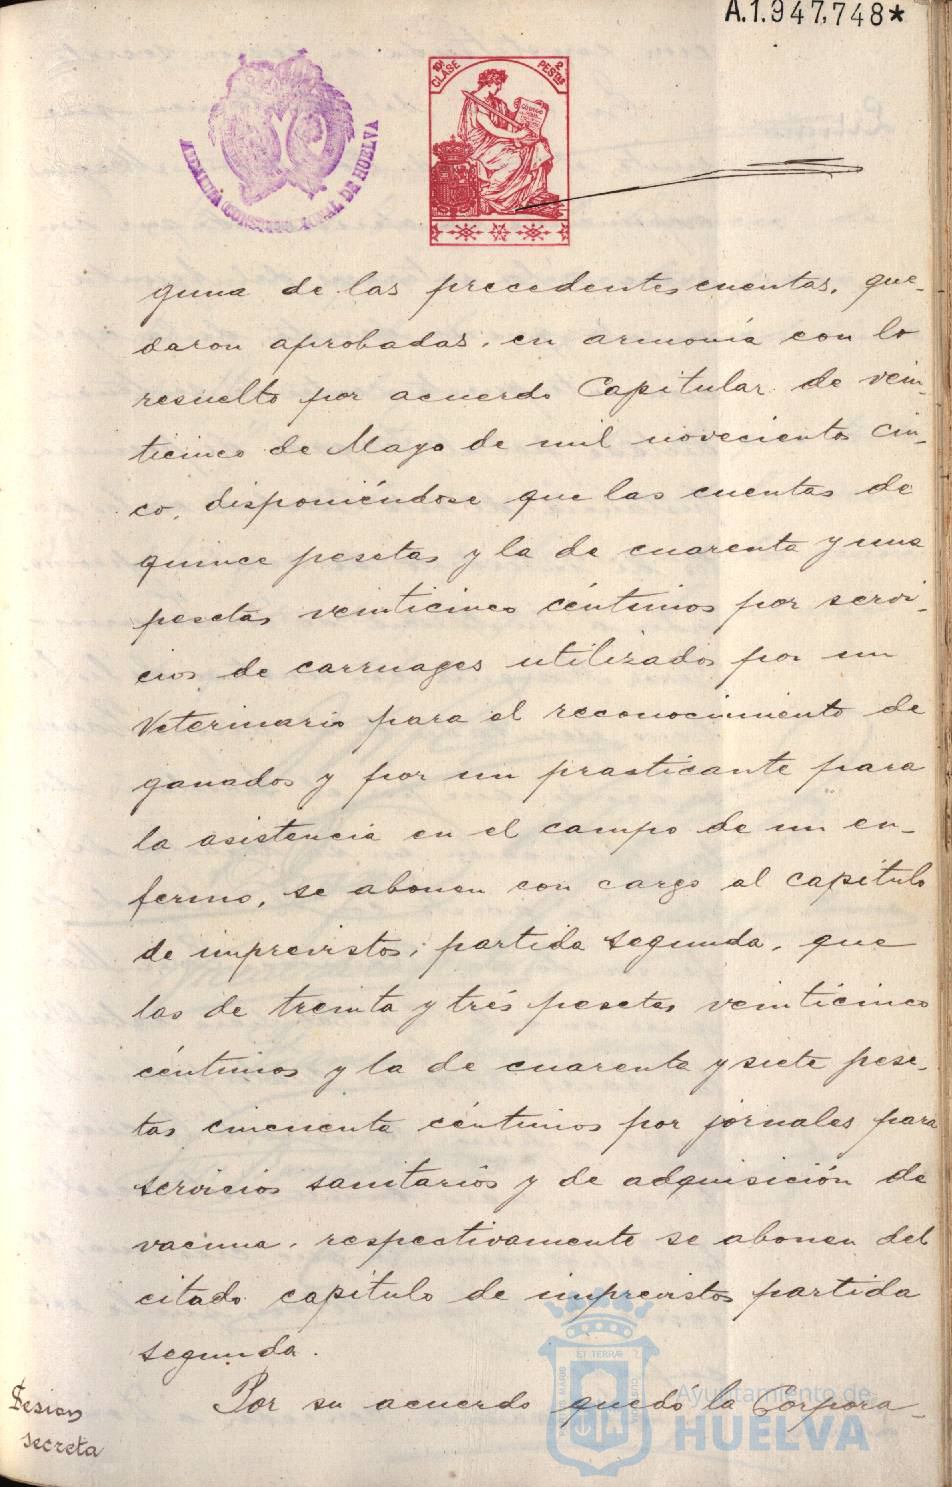 A.1.947,748*
10ª CLASE
2 PESTAS
ALCALDIA CONSTITUCIONAL DE HUELVA
guna de las precedentes cuentas, que-
daron aprobadas, en armonía con lo
resuelto por acuerdo Capitular de vein-
ticinco de Mayo de mil novecientos cin-
co, disponiéndose que las cuentas de
quince pesetas y la de cuarenta y una
pesetas veinticinco céntimos por servi-
cios de carruages utilizados por un
Veterinario para el reconocimiento de
ganados y por un practicante para
la asistencia en el campo de un en-
fermo, se abonen con cargo al capítulo
de imprevistos; partida segunda, que
las de treinta y trés pesetas veinticinco
céntimos y la de cuarenta y siete pese-
tas cincuenta céntimos por jornales para
servicios sanitarios y de adquisición de
vacuna, respectivamente se abonen del
citado capítulo de imprevistos partida
segunda.
Sesion
secreta
Por su acuerdo quedó la Corpora-
ET TERRÆ
Ayuntamiento de
HUELVA